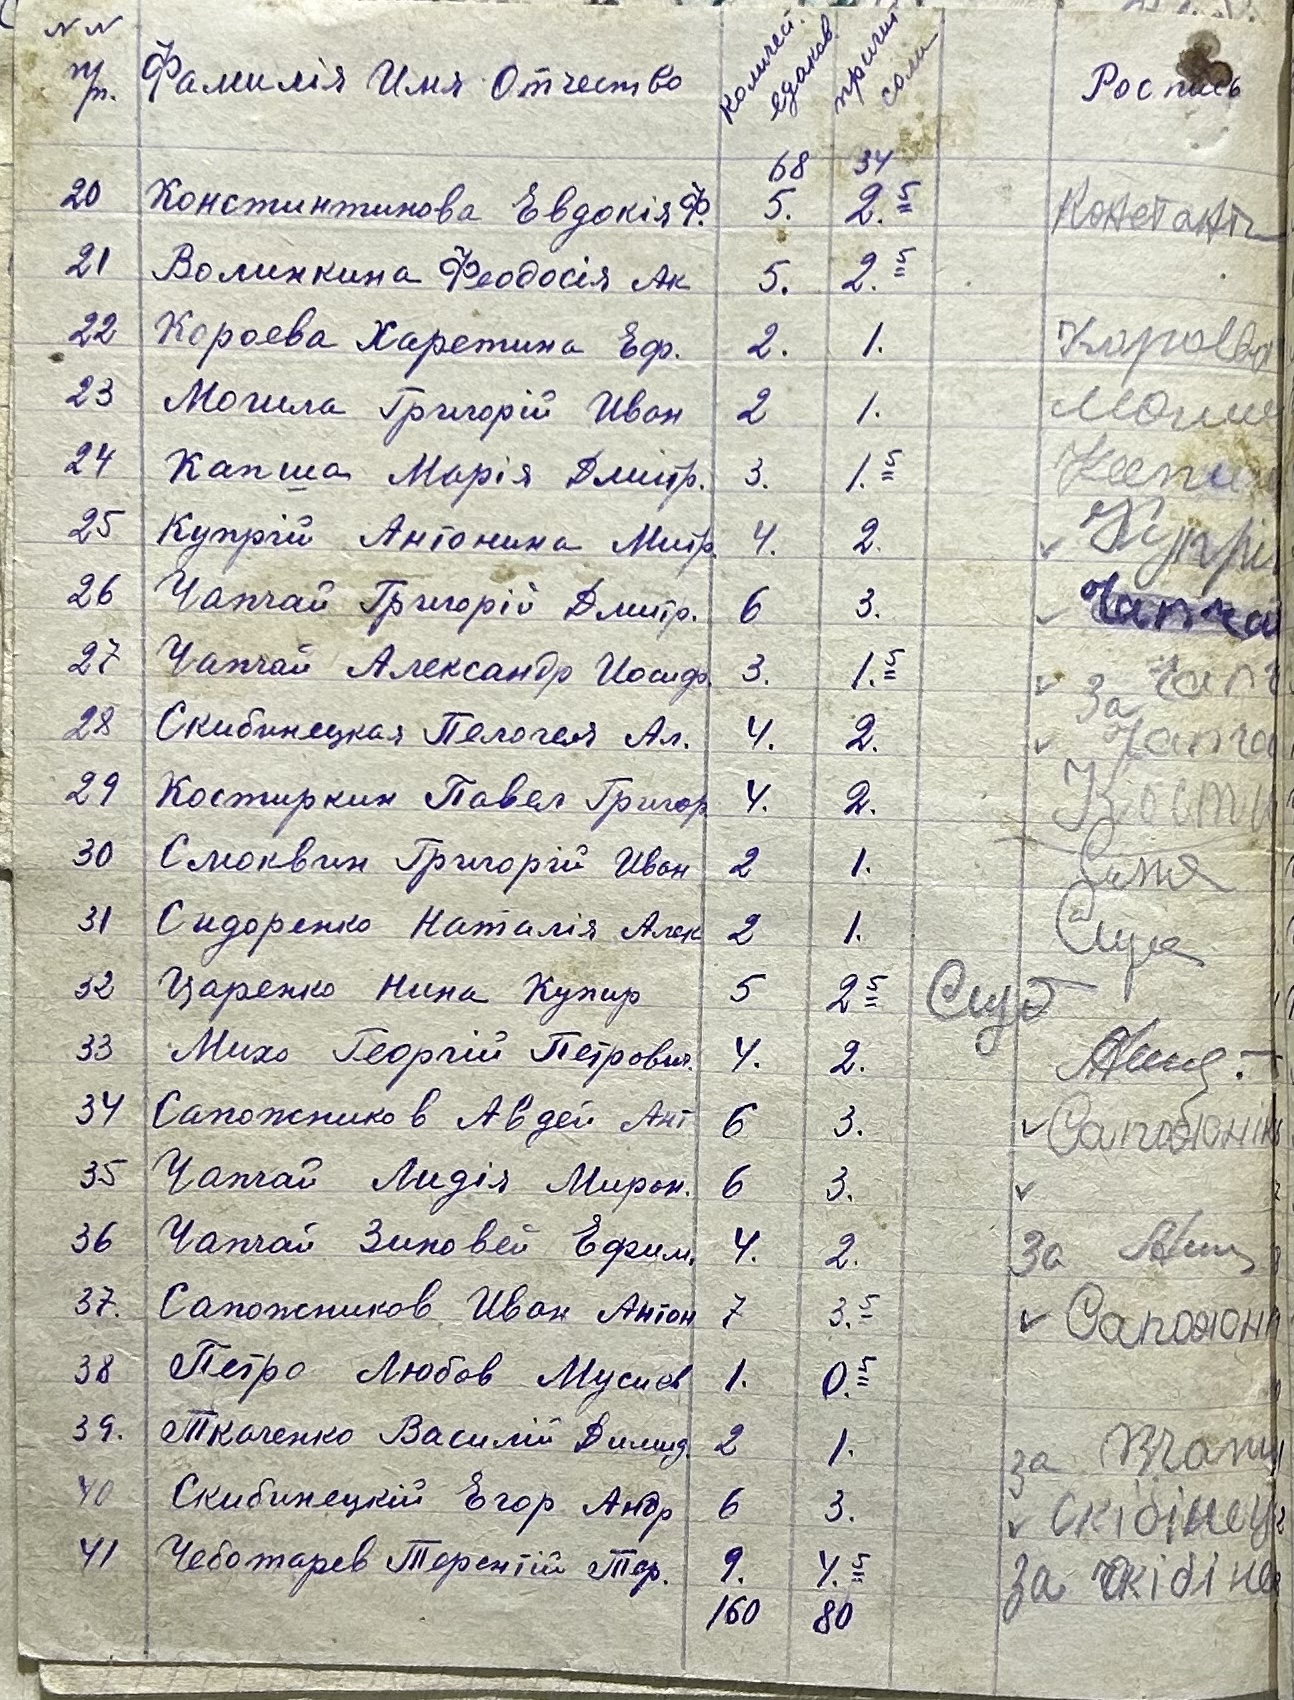 NN п/п. Фамилія Имя Отчество Количест. едаков причит соли Роспись
68 34
20 Констинтинова Евдокія Ф. 5. 2.5 Константи
21 Волинкина Феодосія Ак 5. 2.5
22 Короева Харетина Еф. 2. 1. Кароева
23 Могила Григорій Иван 2 1. Моги
24 Капша Марія Дмитр. 3. 1.5 Капш
25 Купрій Антонина Митр. 4. 2. Купрі
26 Чапчай Григорій Дмитр. 6 3. Чапчай
27 Чапчай Александр Иосиф. 3. 1.5 За Чапч
28 Скибинецкая Пелогея Ал. 4. 2. Чапча
29 Костиркин Павел Григор 4. 2. Кости
30 Смоквин Григорій Иван 2 1.
31 Сидоренко Наталія Алек 2 1.
32 Царенко Нина Купир 5 2 5
33 Михо Георгій Петрович. 4. 2.
34 Сапожников Авдей Ант 6 3. Сапожнік
35 Чапчай Лидія Мирон. 6 3.
36 Чапчай Зиновей Ефим. 4. 2. За
37. Сапожников Иван Антон 7 3.5 Сапожн
38 Петро Любов Мусиев 1. 0.5
39. Ткаченко Василій Димид. 2 1. за
40 Скибинецкій Егор Андр 6 3. Скібінец
41 Чеботарев Терентій Тер. 9. 4.5 За скібіне
160 80